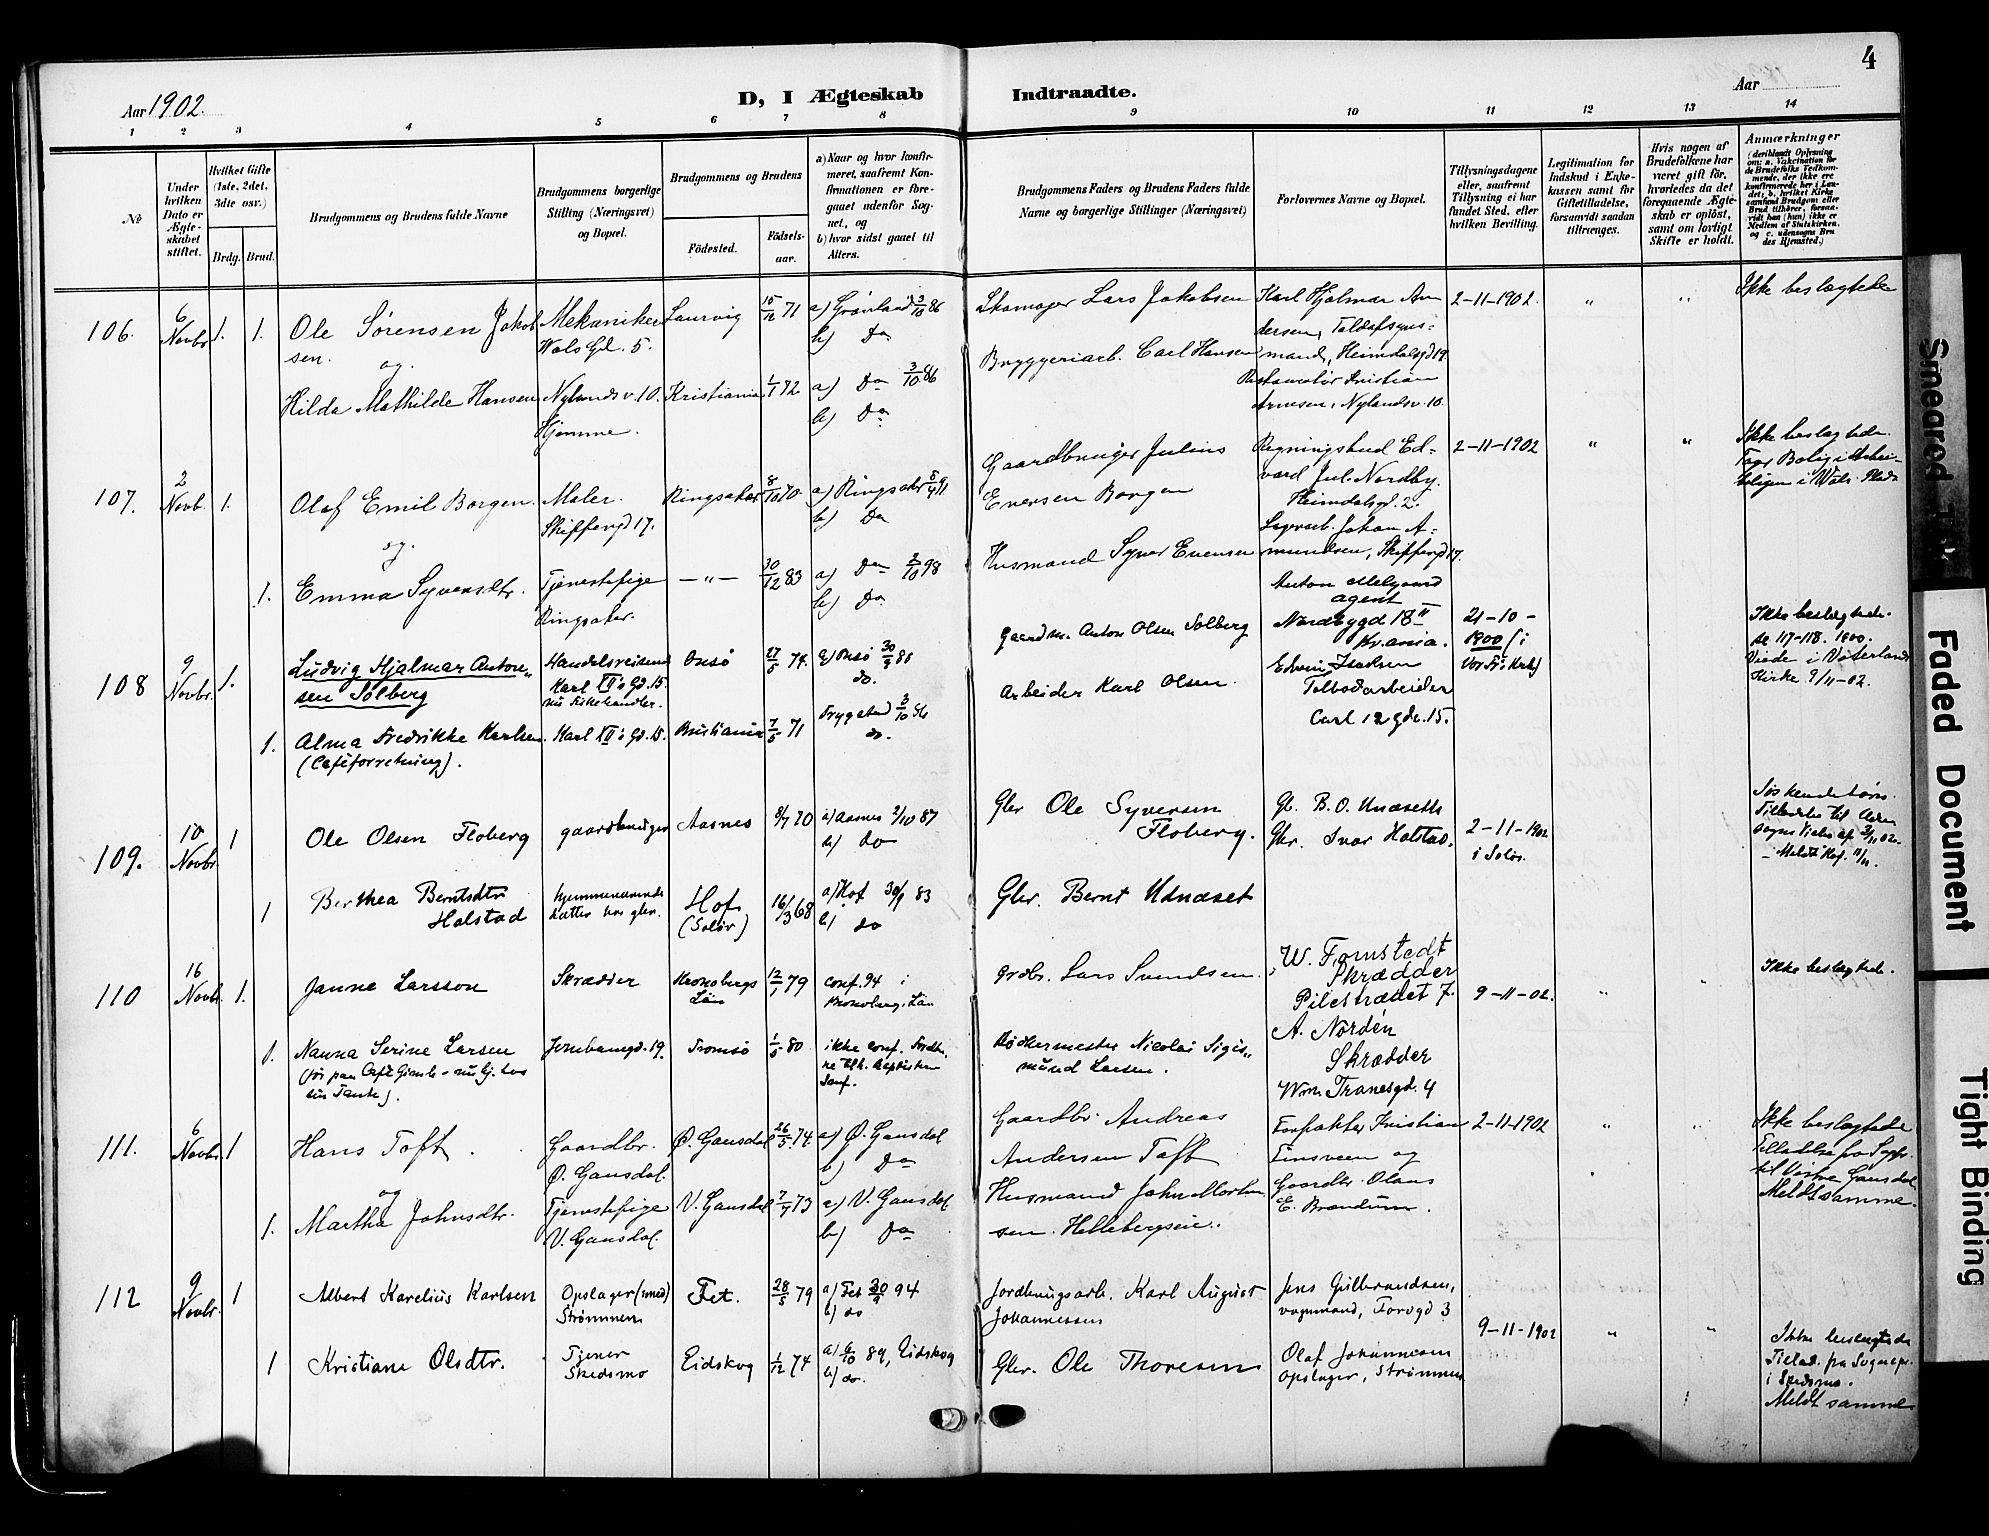 4
Aar 1902.
D, I Ægteskab Indtraadte.
Aar
1 2 3 4 5 6 7 8 9 10 11 12 13 14
№
Under hvilken Dato er Ægteskabet stiftet.
Hvilket Gifte (1ste, 2det, 3dte osv.)
Brdg. Brud.
Brudgommens og Brudens fulde Navne
Brudgommens borgerlige Stilling (Næringsvei) og Bopæl.
Brudgommens og Brudens
Fødested.
Fødselsaar.
a) Naar og hvor konfirmeret, saafremt Konfirmationen er foregaaet udenfor Sognet, og
b) hvor sidst gaaet til Alters.
Brudgommens Faders og Brudens Faders fulde Navne og borgerlige Stillinger (Næringsvei)
Forlovernes Navne og Bopæl.
Tillysningsdagene eller, saafremt Tillysning ei har fundet Sted, efter hvilken Bevilling.
Legitimation for Indskud i Enkekassen samt for Giftetilladelse, forsaavidt saadan tiltrænges.
Hvis nogen af Brudefolkene har været gift før, hvorledes da det foregaaende Ægteskab er opløst, samt om lovligt Skifte er holdt.
Anmærkninger
106. 6 Novbr. 1. 1.
Ole Sørensen Jakobsen.
og
Hilda Mathilde Hansen
Mekaniker
Wals Gd. 5.
Nylandsv. 10.
Hjemme.
Laurvig 15/12 71
Kristiania 1/1 72
a) Grønland 3/10 86
b) Do
a) Do 3/10 86
b) Do
Skomager Lars Jakobsen
Bryggeriarb. Carl Hansen
Karl Hjalmar Andersen, Toldopsynsmand, Heimdalsgd 19.
Restauratør Kristian
Arnesen, Nylandsv. 10.
2-11-1902. " "
Ikke beslægtede
107. 2 Novb. 1.
Olaf Emil Borgen.
og.
1. Emma Syversdtr.
Maler.
Skippergd 17.
Tjenestepige
Ringsaker.
Ringsaker 8/10 70
—"— 30/12 83
a) Ringsaker 5/4 91
b) Do
a) Do 2/10 98
b) Do
Gaardbruger Julius
Evensen Borgen
Husmand Syver Evensen
Regningsbud Edvard Jul. Nordby.
Heimdalsgd. 2.
Lagerarb. Johan Amundsen, Skippergd 17.
2-11-1902 " "
Ikke beslægtede.
108 9 Novbr. 1.
Ludvig Hjalmar Antonsen Solberg
1. Alma Fredrikke Karlsen
(Caféforretning).
Handelsreisende
Karl XII's Gd. 15.
nu Fiskehandler.
Karl XII's Gd. 15.
Onsø 27/5 74.
Kristiania 7/5 71
a) Onsø 30/9 88
do.
Trygstad 3/10 86
do.
Gaardm. Anton Olsen Solberg
Arbeider Karl Olsen.
Anton Melgaard
agent
Nordbygd 18 II
Kr.ania.
Edwin Isaksen
Toldbodarbeider
Carl 12 gde. 15.
21-10-
1900 (i
Vor Fr. Kirke)
Ikke beslægtede.
se 117-118. 1900.
Viede i Vaterlands
Kirke 9/11-02.
109. 10 Novbr. 1
Ole Olsen Floberg
1 Berthea Berntsdtr
Halstad
gaardbruger
hjemmeværende
datter hos gbr.
Aasnes 8/7 70
Hof
(Solør) 16/3 68
a) Aasnes 2/10 87
b) do
a) Hof 30/9 83
b) do
Gbr Ole Syversen
Floberg.
Gbr. Bernt Udnæset
G. B. O. Undsetts
Gbr. Ivar Halstad.
2-11-1902
i Solør.
Søskendebørn.
110 16 Novbr. 1.
Janne Larsson
1. Nanna Serine Larsen
(før paa Café Gimle - nu hj. hos
sin Tante).
Skrædder
Jernbanegd. 19.
Kronobergs
Län 12/1 79
Tromsø 1/5 80
conf. 94 i
Kronoberg, Län
ikke conf.
Grdbr. Lars Svendsen.
Bødkermester Nicolai Sigismund Larsen.
W. Fornstedt
Skrædder
Pilestrædet 7.
A. Nordén
Skrædder
Wm. Tranesgd. 4
9-11-02. " "
Ikke beslægtede.
111. 6 Novbr. 1
Hans Toft.
og
1. Martha Johnsdtr.
Gaardbr.
Ø. Gausdal.
Tjenestepige
V. Gausdal.
Ø. Gausdal 26/5 74.
V. Gausdal 7/7 73
a) Ø. Gausdal
b) Do
a) V. Gausdal
b) Do
Gaardbr. Andreas
Andersen Toft
Husmand John Mortensen Hellebergseie.
Forpakter Kristian
Linsveen og
Gaardbr. Olaus
E. Brændum.
2-11-1902 " "
Ikke beslægtede
Meldt samme.
112 9 Novbr. 1
Albert Karelius Karlsen
1 Kristiane Olsdtr.
Opslager (smed)
Strømmen
Tjener
Skedsmo
Fet. 28/5 79
Eidskog 1/12 74
a) Fet 30/9 94
b) do
a) 6/10 89, Eidskog
b) do.
Jordbrugsarb. Karl August
Johannessen
Gbr. Ole Thoresen
Jens Gulbrandsen,
vognmand, Torvgd 3
Olaf Johannesen
opslager, Strømmen
9-11-1902 " "
Ikke beslægtede
Tillad. fra Sognepr.
i Skedsmo.
Meldt samme
Smeared
Faded Document
Tight Binding